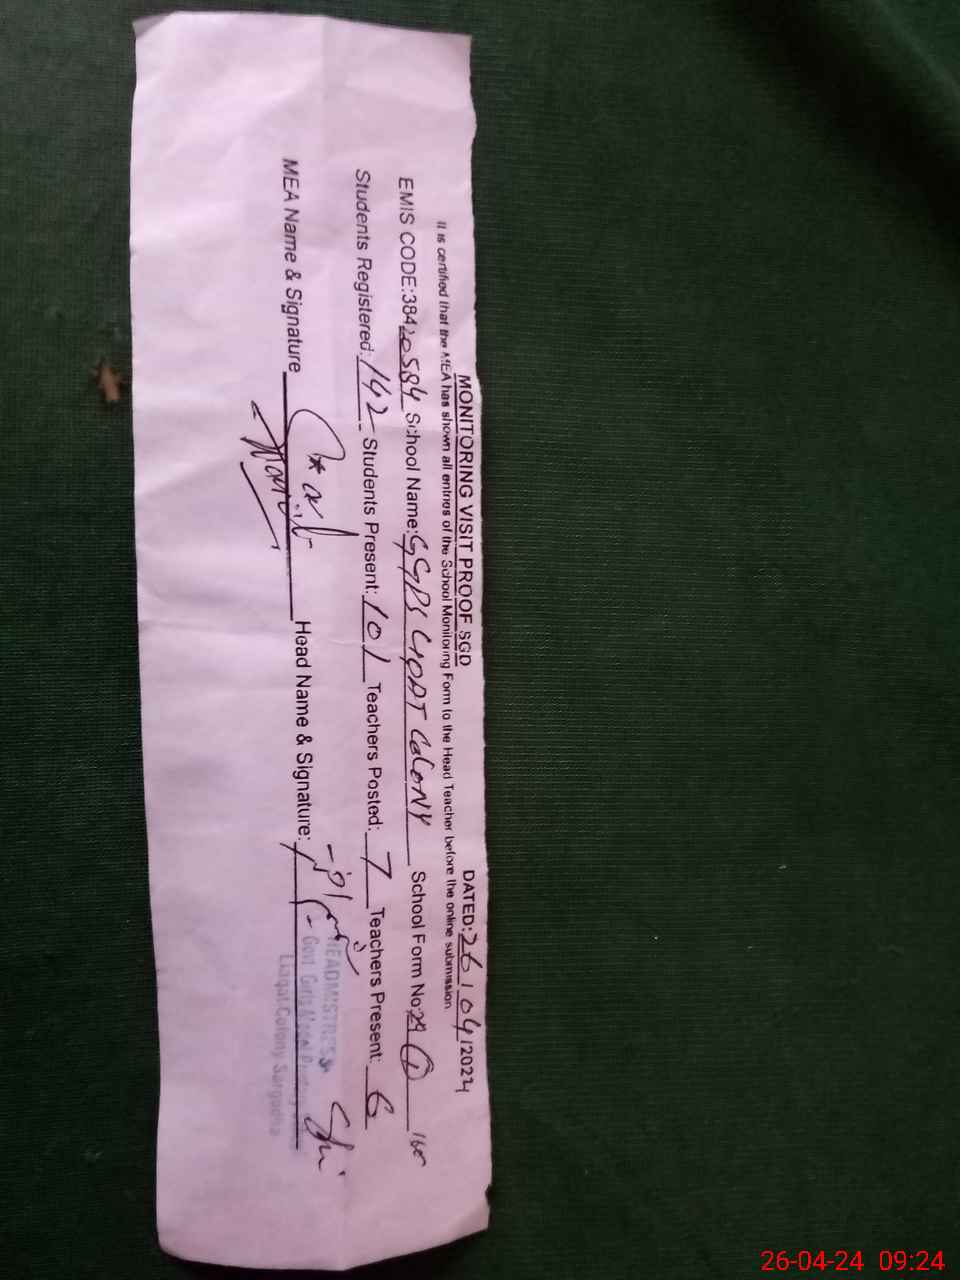 MONITORING VISIT PROOF SGD DATED: 26/04/2024
It is certified that the MEA has shown all entries of the School Monitoring Form to the Head Teacher before the online submission.
EMIS CODE:38420584 School Name: GGPS LIQAT COLONY School Form No:
Students Registered: 142 Students Present: 101 Teachers Posted: 7 Teachers Present: 6
MEA Name & Signature Head Name & Signature:
HEADMISTRESS
Govt. Girls Model Primary
Liaqat Colony Sargodha
26-04-24 09:24